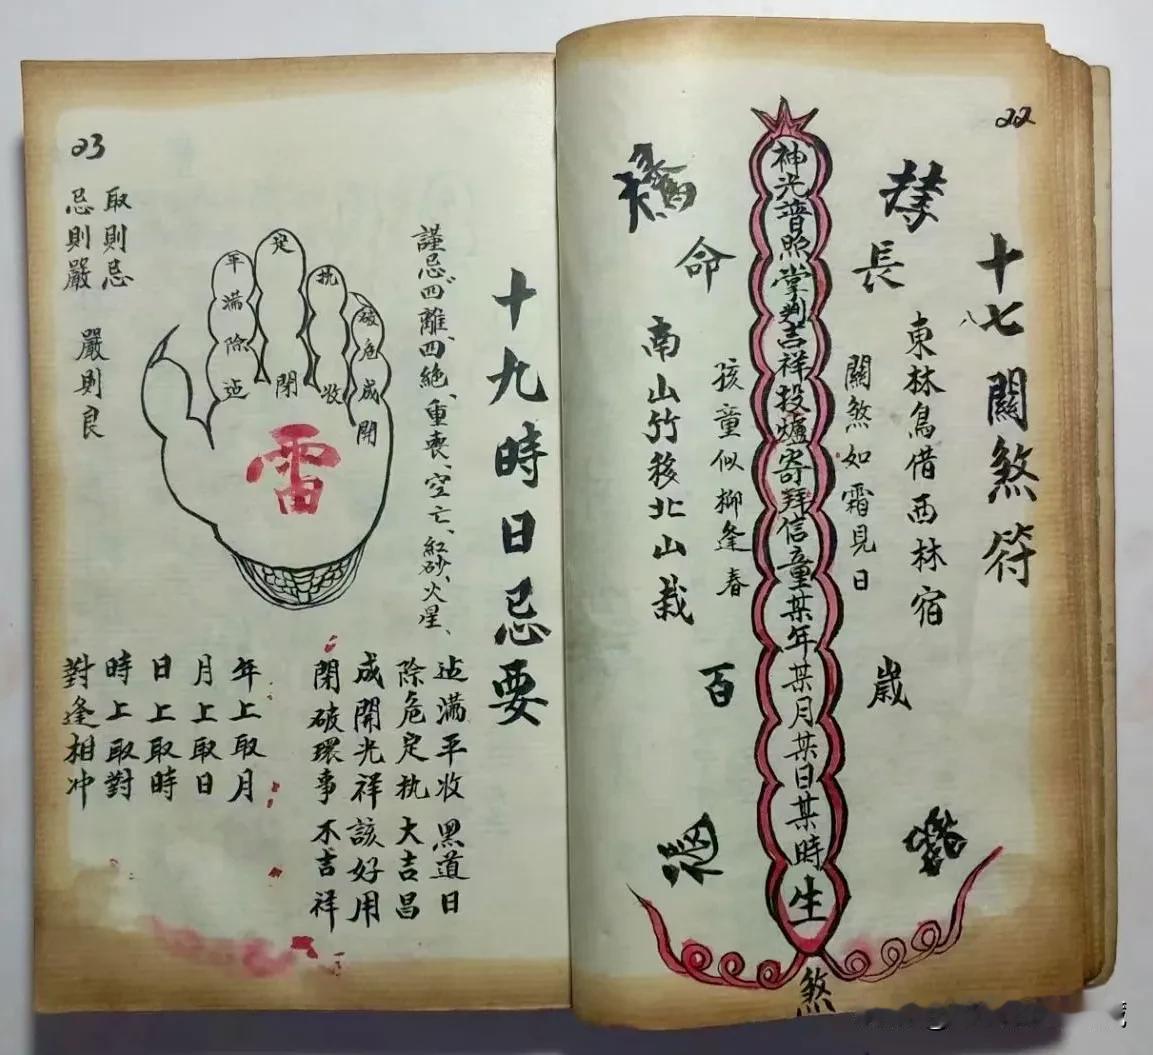 22
十七關煞符
八
東林鳥借西林宿
長
歲
關煞如霜見日
神光普照掌判吉祥投爐寄拜信童某年某月某日某時生
煞
孩童似柳逢春
命
百
南山竹移北山栽
23
十九時日忌要
謹忌四離、四絕、重喪、空亡、紅砂、火星、
建滿平收 黑道日
除危定执 大吉昌
成開光祥該好用
閉破環事 不吉祥
定
閉
执
收
破
危
成
開
平
滿
除
建
雷
年上取月
月上取日
日上取時
時上取對
對逢相冲
取則忌
忌則嚴
嚴則良